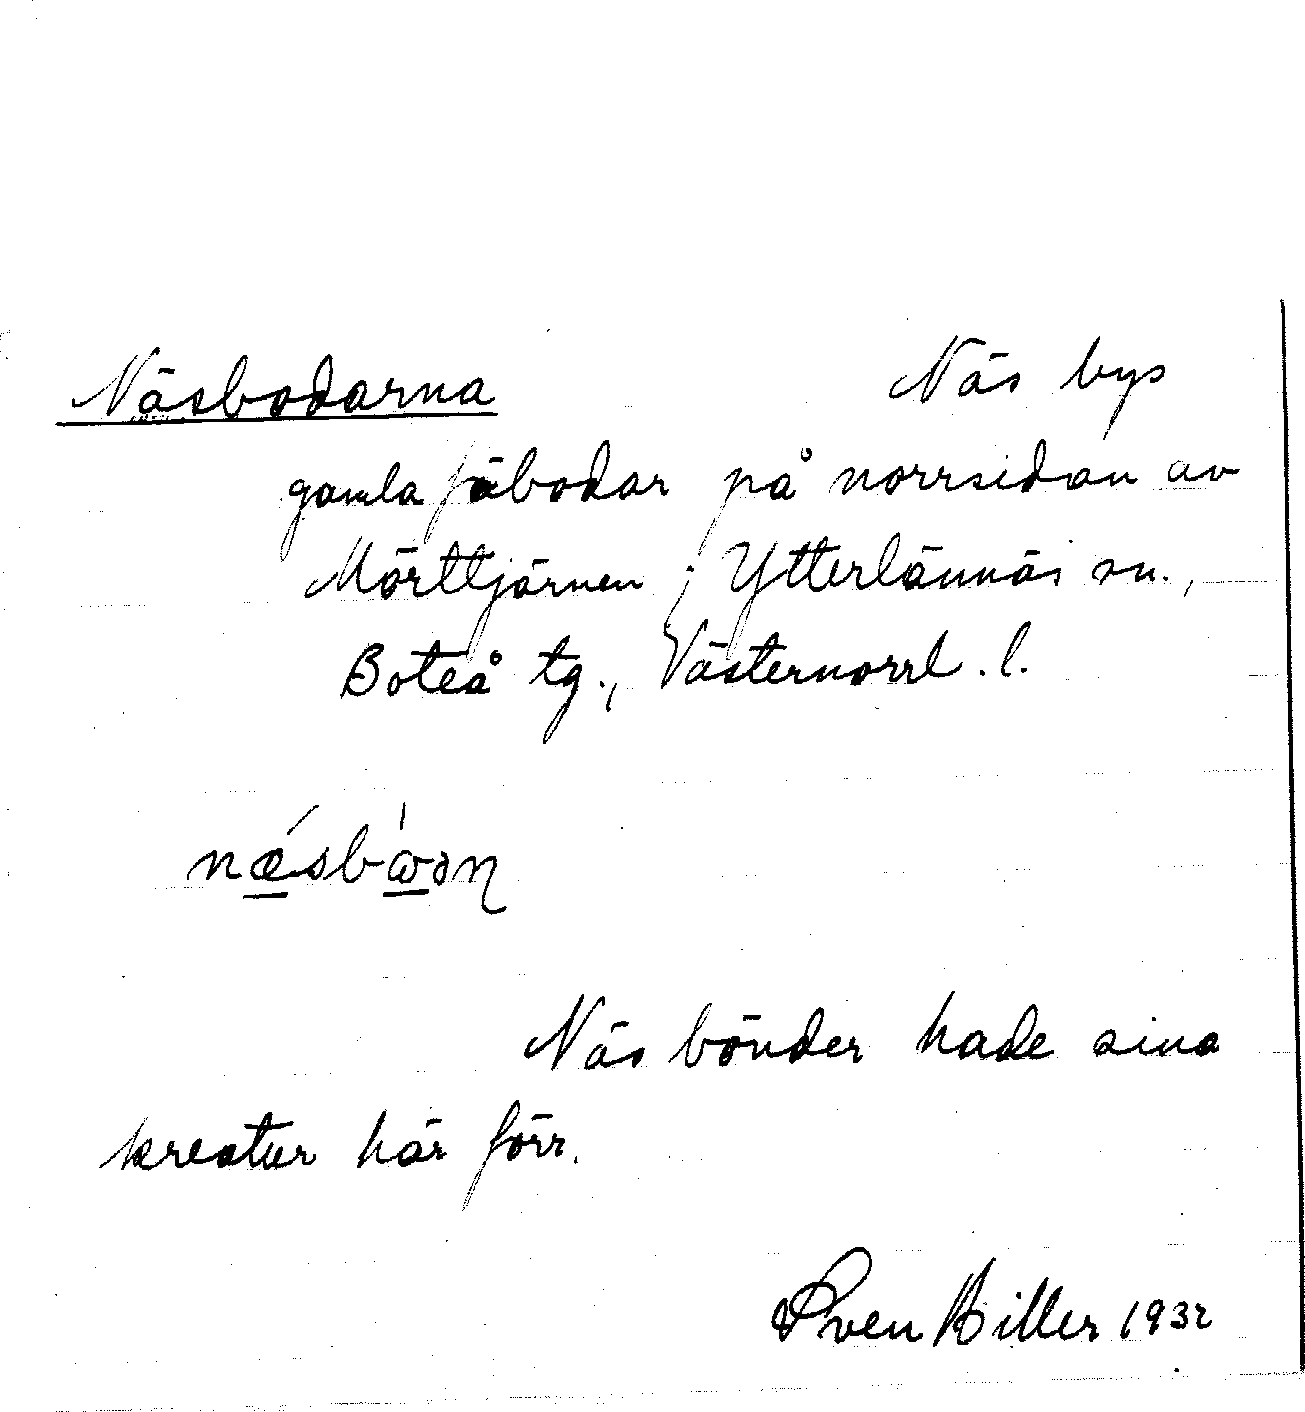 Näsbodarna Näs bys
gamla fäbodar på norrsidan av
Mörttjärnen i Ytterlännäs sn.,
Boteå tg., Västernorrl. l.
Näs bönder hade sina
kreatur här förr.
Sven Hiller 1932